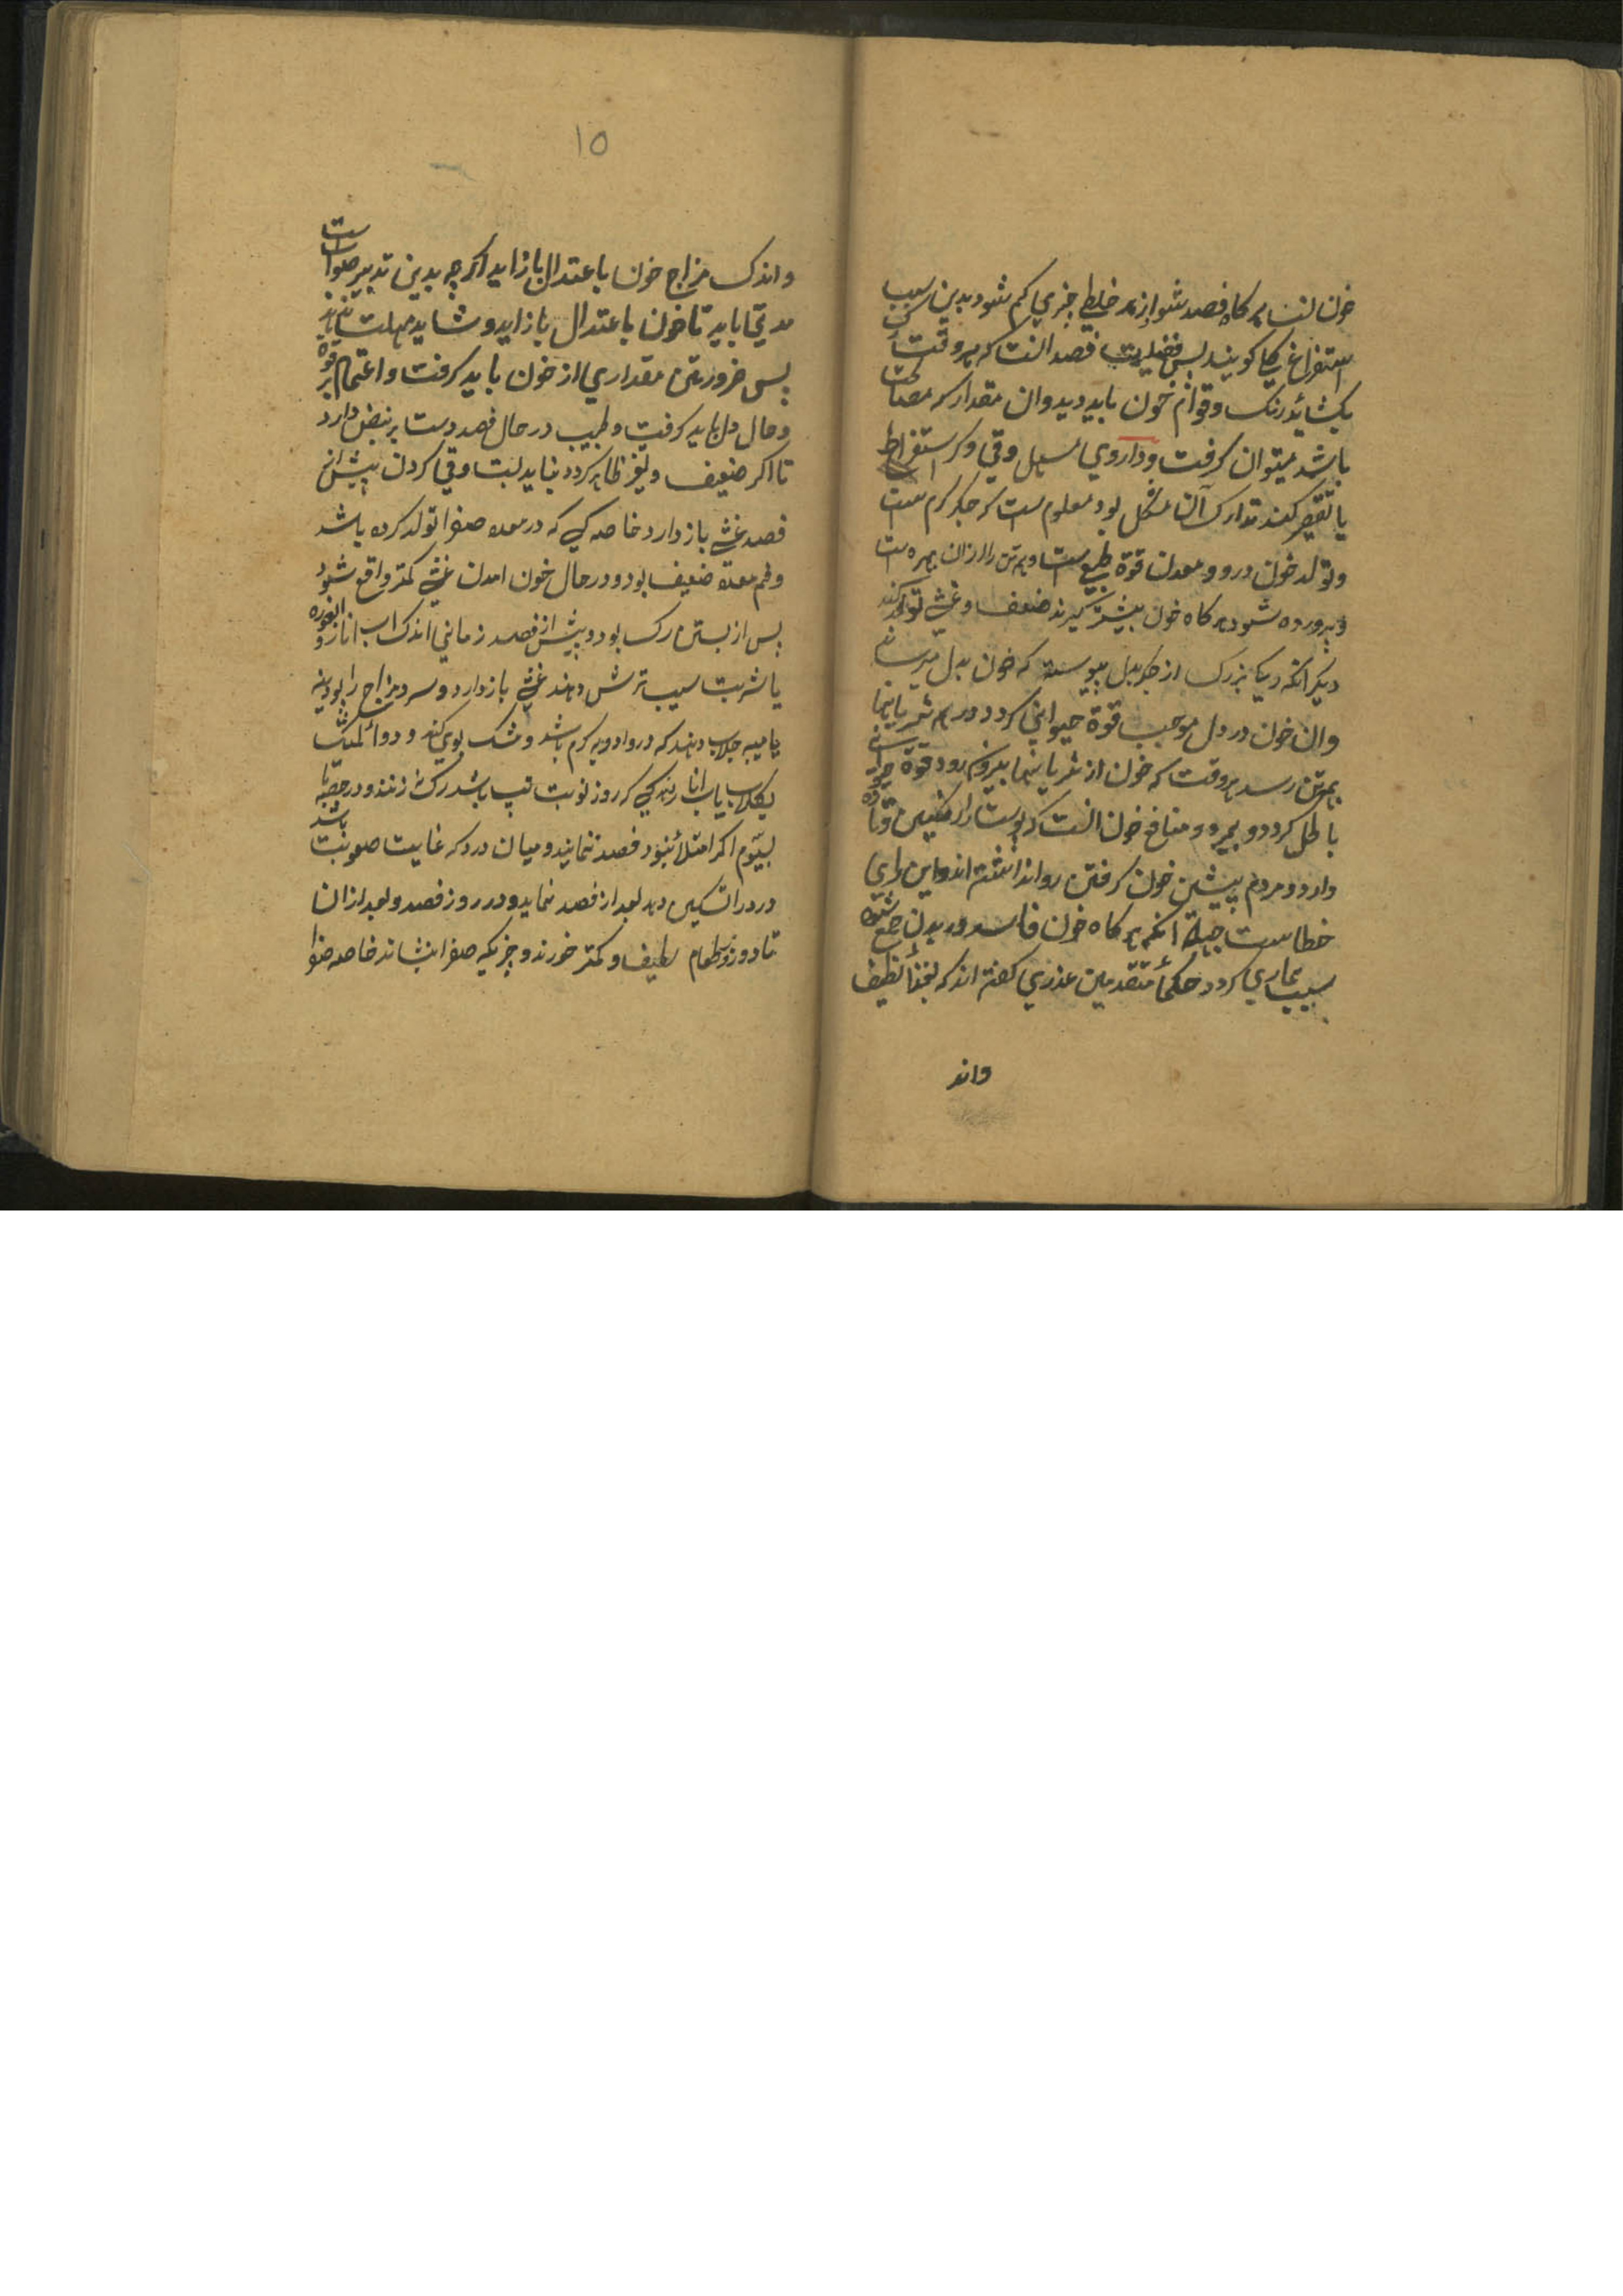 خون است هر کاه فصد شود از هر خلطی جزی کم شود بدین سبب
استفراغ کلی کویند پس فضیلت فصد انست که هر وقت رک
بکشاید رنک و قوام خون باید دید و ان مقدار که مصلحت
باشد میتوان کرفت و داروی مسهل و قی و کر استفراط
یا تقصیر کند تدارک آن مشکل بود معلوم است که جکر کرم است
و تولد خون درو و معدن قوة طبیعی است و همه تن را ازان بهره است
و پرورده شود هر کاه خون بیشتر کیرند ضعف و غشی تولد کند
دیکر انکه رکی بزرک از جکر بدل پیوسته که خون بدل میرساند
وان خون در دل موجب قوة حیوانی کردد و در همه شریانها
بهمه تن رسد هر وقت که خون از شریانها بیرون رود قوة حیوانی
باطل کردد و بمیرد و منافع خون انست که پوست را رنکین و تازه
دارد و مردم پیشین خون کرفتن روا نداشته اند و این رای
خطاست جهة انکه هر کاه خون فاسد در بدن جمع شود
سبب بیماری کردد حکماء متقدمین عذری کفته اند که بغذاء لطیف
واند
۱۵
واندک مزاج خون باعتدال باز اید اکر چه بدین تدبیر صواب است
مدتی باید تا خون باعتدال باز اید و شاید مهلت نیابد
پس ضرورتی مقداری از خون باید کرفت و اعتماد بر قوة
و حال دل باید کرفت و طبیب در حال فصد دست بر نبض دارد
تا اکر ضعیف و لیغر ظاهر کردد بباید بست و قی کردن پیش از
فصد غشی باز دارد خاصه کسی که در معده صفرا تولد کرده باشد
و فم معده ضعیف بود و در حال خون امدن غشی کمتر واقع شود
پس از بستن رک بود و پیش از فصد زمانی اندک اب انار و ابغوره
یا شربت سیب ترش دهند غشی باز دارد و سرد مزاج را بودینه
یا میبه جلاب دهند که درو ادویه کرم باشد و مشک بوی کند و دواء المشک
بکلاب یا باب انار کسی که روز نوبت تب باشد رک نزنند و در حصبه تا
بسیوم اکر امتلا نبود فصد ننمایند و میان درد که غایت صعوبت باشد
درد را تسکین دهد بعد از فصد نماید و در روز فصد و بعد از ان
تا دو روز طعام لطیف و کمتر خورند و چیزیکه صفرا بنشاند خاصه صفرا